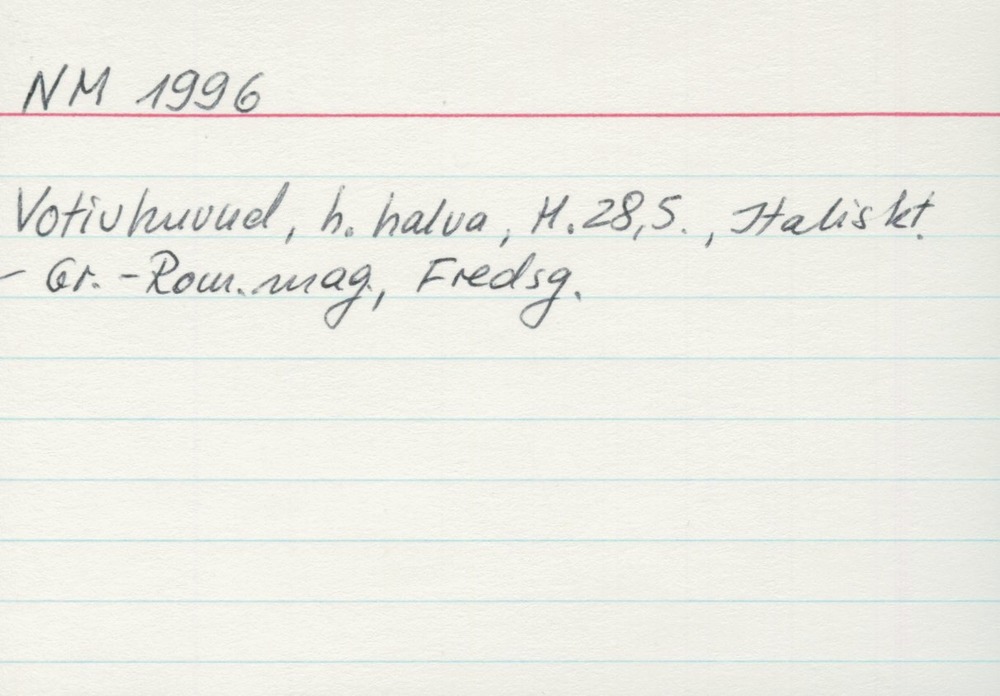 NM 1996
Votivhuvud, h. halva, H. 28,5., Italiskt.
- Gr. - Rom. mag., Fredsg.